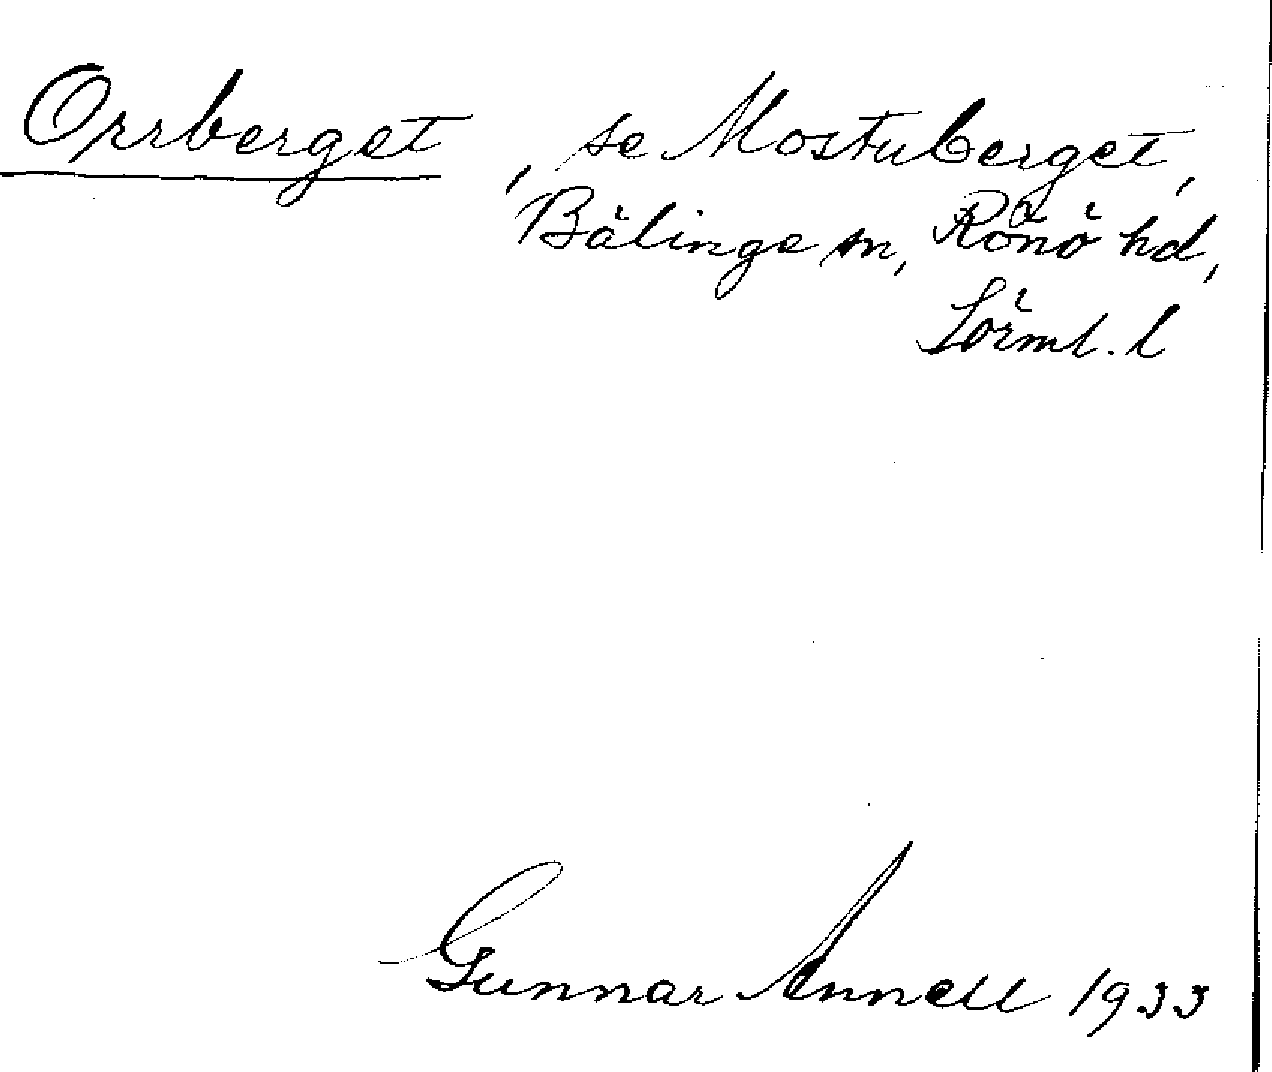 Orrberget, se Mostuberget,
Bälinge sn, Rönö hd,
Sörml. l
Gunnar Annell 1933